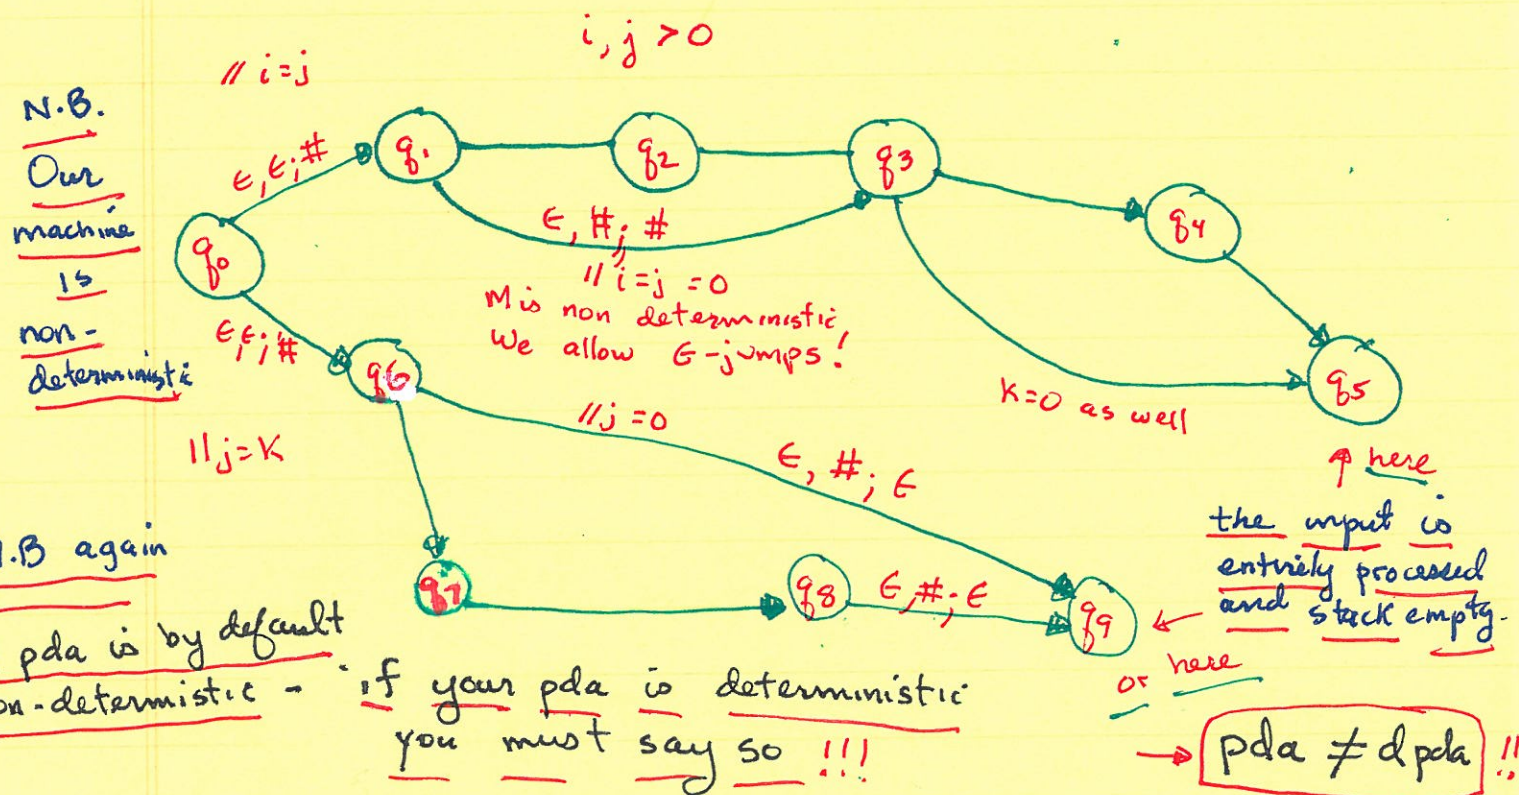 i, j > 0
// i=j
N.B.
Our
machine
is
non-
deterministic
ϵ, ϵ; #
q1
q2
q3
q4
q0
ϵ, #; #
// i=j=0
M is non deterministic
We allow ϵ-jumps!
ϵ, ϵ; #
q6
q5
K=0 as well
//j=0
ϵ, #; ϵ
//j=K
↑ here
the input is
entirely processed
and stack empty.
.B again
q7
q8
ϵ, #; ϵ
q9
← or here
pda is by default
on-deterministic - if your pda is deterministic
you must say so !!!
→ pda ≠ dpda !!